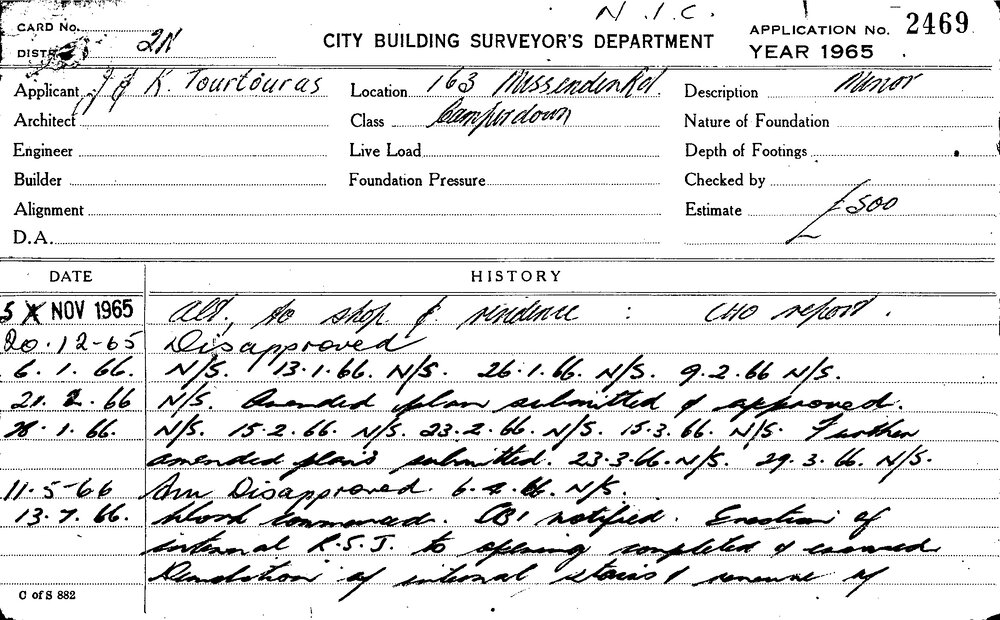 N.I.C.
CARD No.
DISTR 2N
CITY BUILDING SURVEYOR'S DEPARTMENT
APPLICATION No. 2469
YEAR 1965
Applicant J & K. Tourtouras
Location 163 Missenden Rd
Description Minor
Architect
Class Camperdown
Nature of Foundation
Engineer
Live Load
Depth of Footings
Builder
Foundation Pressure
Checked by
Alignment
Estimate £500
D.A.
DATE HISTORY
5 NOV 1965 Alt. to shop & residence : CHO report.
20.12-65 Disapproved
6.1.66. N/S. 13.1.66. N/S. 26.1.66. N/S. 9.2.66 N/S.
21.2.66 N/S. Amended plan submitted & approved.
28.1.66. N/S. 15.2.66. N/S. 23.2.66. N/S. 15.3.66. N/S. Further
amended plans submitted. 23.3.66. N/S. 29.3.66. N/S.
11.5-66 Am Disapproved. 6.4.66. N/S.
13.7.66. commenced. CBI notified. Erection of
internal R.S.J. to opening completed &
Demolition of internal stairs & of
C of S 882